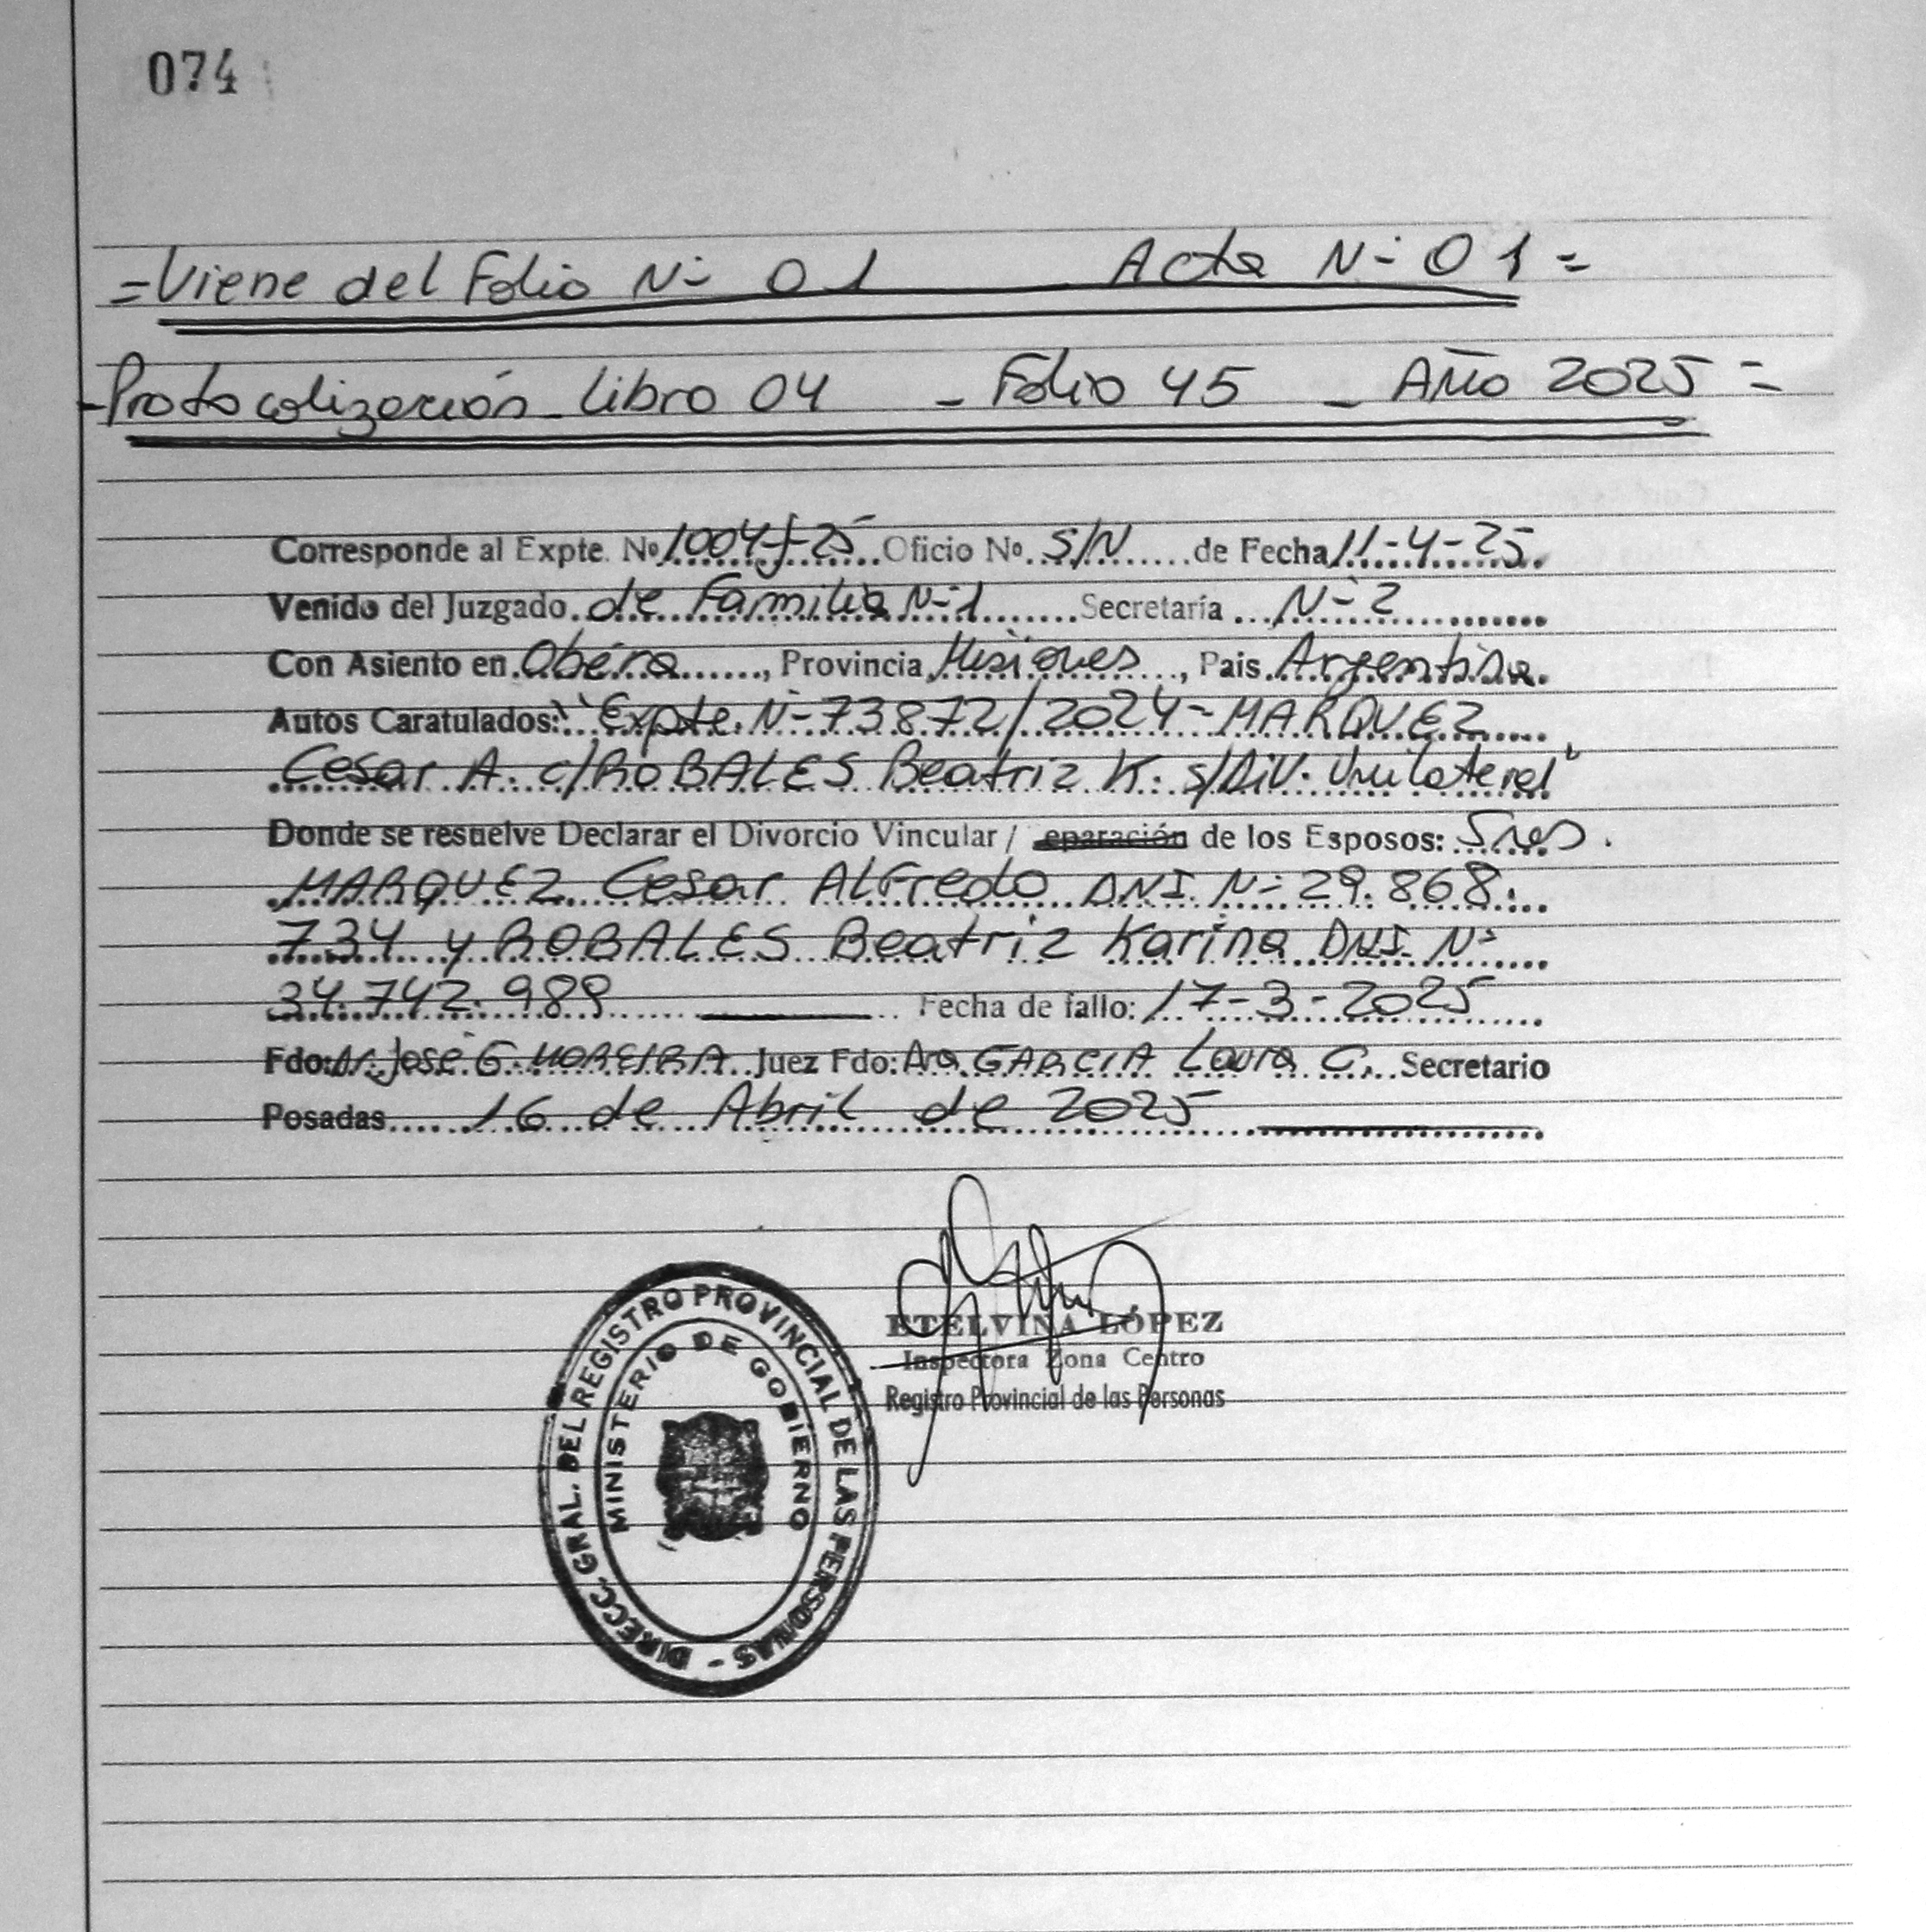 074
=Viene del Folio Nº 01 Acta Nº 01=
-Protocolización-Libro 04 - Folio 45 - Año 2025=
Corresponde al Expte. Nº 1004-J-25 Oficio Nº S/N de Fecha 11-4-25
Venido del Juzgado de Familia Nº1 Secretaría Nº 2
Con Asiento en Oberá, Provincia Misiones, Pais Argentina.
Autos Caratulados: "Expte. Nº 73872/2024 - MARQUEZ
Cesar A. c/ROBALES Beatriz K. s/Div. Unilateral"
Donde se resuelve Declarar el Divorcio Vincular / eparación de los Esposos: Sres.
MARQUEZ Cesar ALFredo DNI. Nº 29.868.
734 y ROBALES Beatriz Karina DNI. Nº
34.742.989 Fecha de fallo: 17-3-2025
Fdo: Dr. José G. MOREIRA Juez Fdo: Dra GARCIA Laura C. Secretario
Posadas 16 de Abril de 2025
ETELVINA LÓPEZ
Inspectora Zona Centro
Registro Provincial de las Personas
DIRECC. GRAL. DEL REGISTRO PROVINCIAL DE LAS PERSONAS -
MINISTERIO DE GOBIERNO